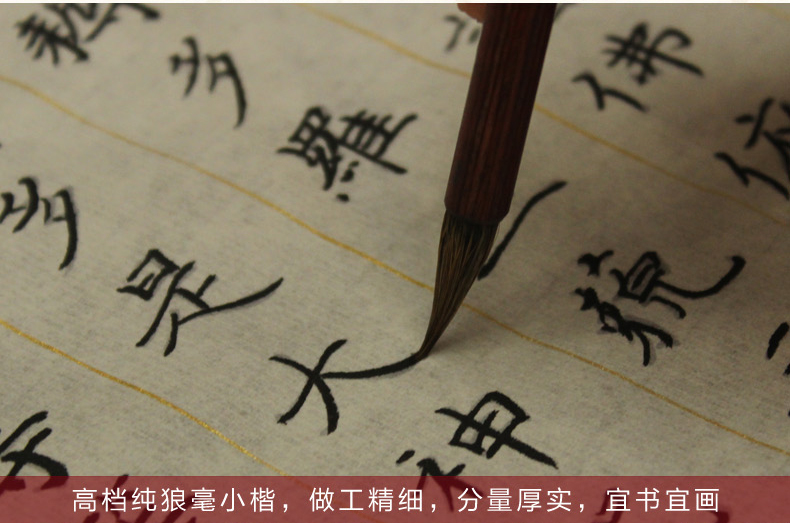 佛依
耨多羅藐
多是大神
高档纯狼毫小楷，做工精细，分量厚实，宜书宜画